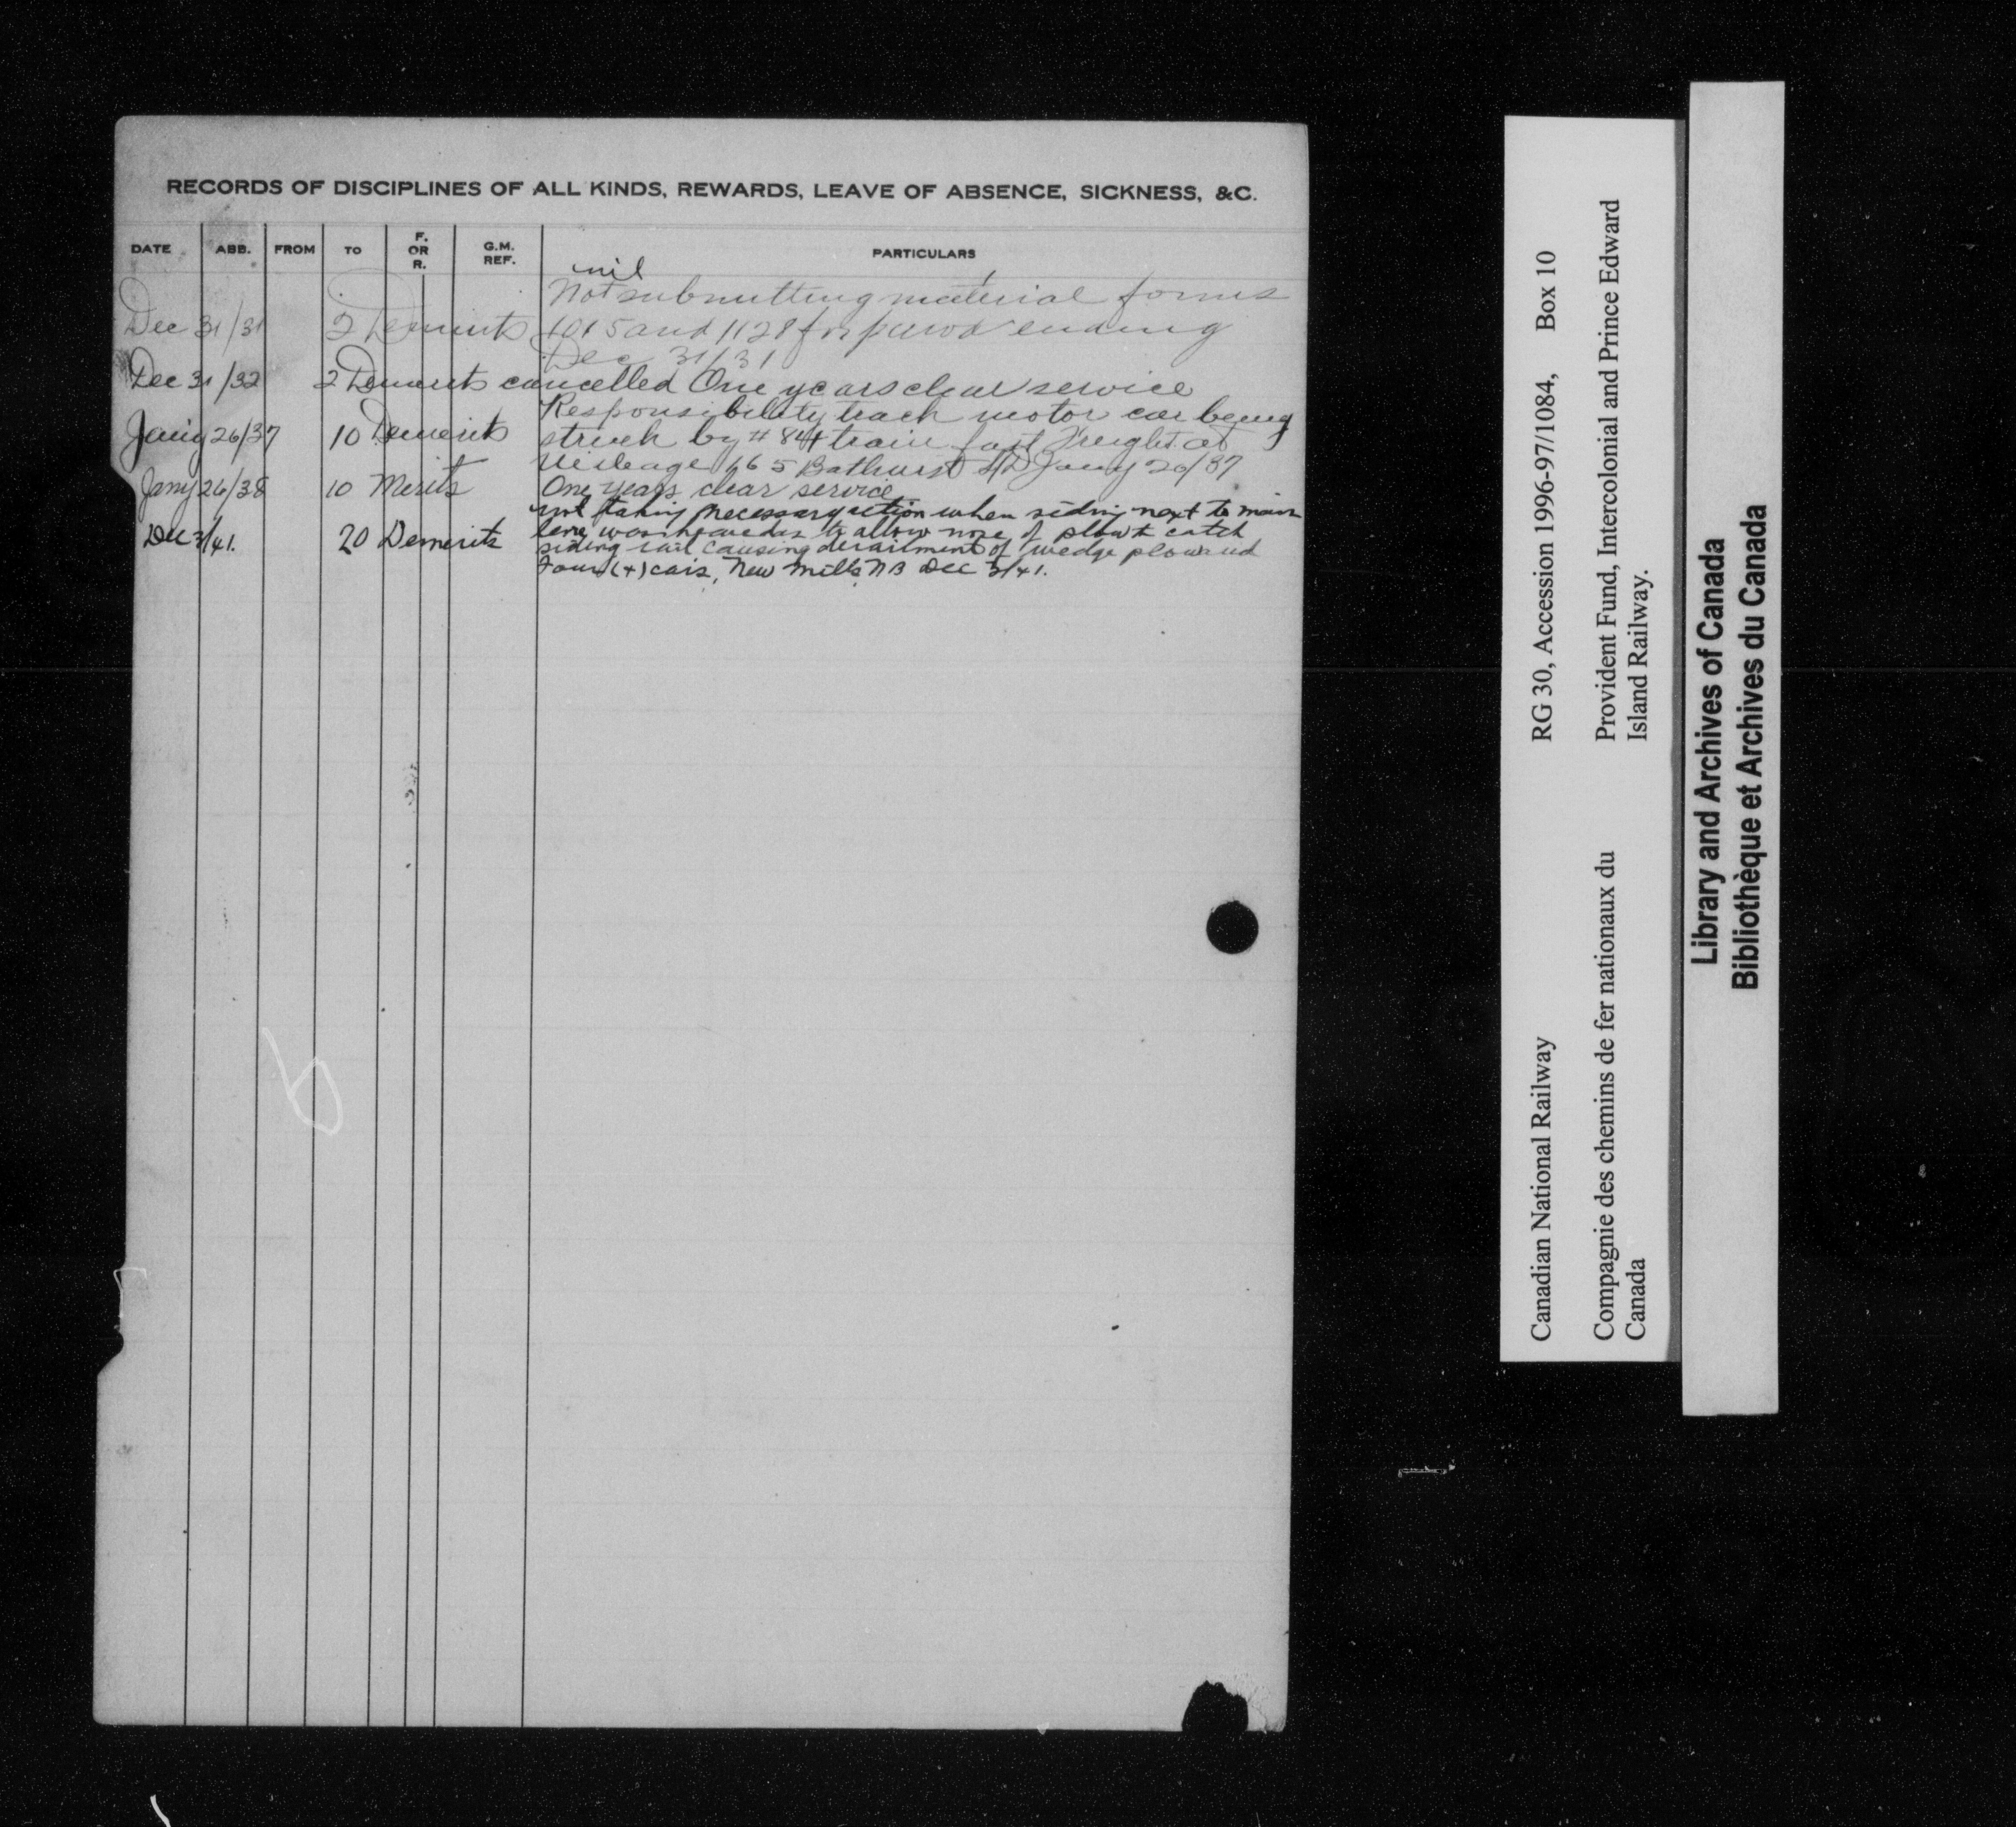 RECORDS OF DISCIPLINES OF ALL KINDS, REWARDS, LEAVE OF ABSENCE, SICKNESS, &C.
DATE ABB. FROM TO F. OR R. G.M. REF. PARTICULARS
nil
Not submitting material forms
Dec 31/31 2 Demerits 1015 and 1128 for period ending
Dec 31/31
Dec 31/32 2 Demerits cancelled One years clear service
Responsibility track motor car being
Jany 26/37 10 Demerits struck by # 844 train fast Freight at
Mileage 66 5 Bathurst S/D Jany 26/37
Jany 26/38 10 Merits One years clear service
not taking necessary action when siding next to main
Dec 3/41. 20 Demerits line was heaved as to allow nose of plow to catch
siding rail causing derailment of wedge plow and
Four (4) cars, New Mills, NB Dec 3/41.
Canadian National Railway RG 30, Accession 1996-97/1084, Box 10
Compagnie des chemins de fer nationaux du Provident Fund, Intercolonial and Prince Edward
Canada Island Railway.
Library and Archives of Canada
Bibliothèque et Archives du Canada